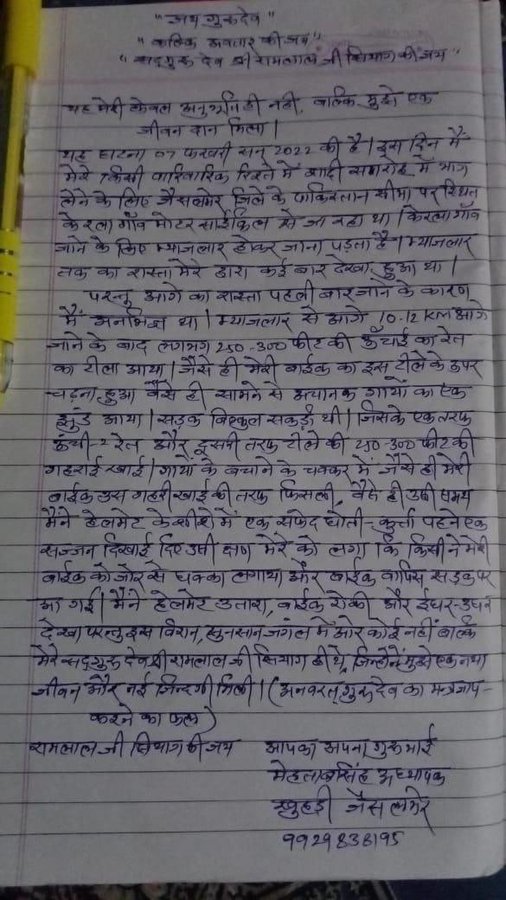 "जय गुरुदेव"
"कल्कि अवतार की जय"
"सदगुरु देव श्री रामलाल जी सियाग की जय"
यह मेरी केवल अनुभूति ही नही, बल्कि मुझे एक
जीवन दान मिला।
यह घटना 07 फरवरी सन् 2022 की है। इस दिन मैं
मेरे किसी पारिवारिक रिश्ते में शादी समारोह में भाग
लेने के लिए जैसलमेर जिले के पाकिस्तान सीमा पर स्थित
केरला गाँव मोटर साईकिल से जा रहा था। केरला गाँव
जाने के लिए म्याजलार होकर जाना पड़ता है। म्याजलार
तक का रास्ता मेरे द्वारा कई बार देखा हुआ था।
परन्तु आगे का रास्ता पहली बार जाने के कारण
मैं अनभिज्ञ था। म्याजलार से आगे 10-12 KM आगे
जाने के बाद लगभग 250-300 फीट की ऊँचाई का रेत
का टीला आया। जैसे ही मेरी बाईक का इस टीले के उपर
चढ़ना हुआ वैसे ही सामने से अचानक गायों का एक
झुंड आया। सड़क बिल्कुल सकड़ी थी। जिसके एक तरफ
ऊंची 2 रेत और दूसरी तरफ टीले की 250-300 फीट की
गहराई खाई। गायों के बचाने के चक्कर में जैसे ही मेरी
बाईक उस गहरी खाई की तरफ फिसली, वैसे ही उसी समय
मैंने हेलमेट के शीशे में एक सफेद धोती-कुर्त्ता पहने एक
सज्जन दिखाई दिए उसी क्षण मेरे को लगा कि किसी ने मेरी
बाईक को जोर से धक्का लगाया और बाईक वापिस सड़क पर
आ गई। मैंने हेलमेट उतारा, बाईक रोकी और ईधर-उधर
देखा परन्तु इस विरान, सुनसान जंगल में और कोई नहीं बल्कि
मेरे सदगुरु देव श्री रामलाल जी सियाग ही थे, जिन्होंने मुझे एक नया
जीवन और नई जिन्दगी मिली। (अनवरत् गुरुदेव का मंत्र जाप-
करने का फल)
रामलाल जी सियाग की जय आपका अपना गुरु भाई
मेहताबसिंह अध्यापक
खुहड़ी जैसलमेर
9929838195